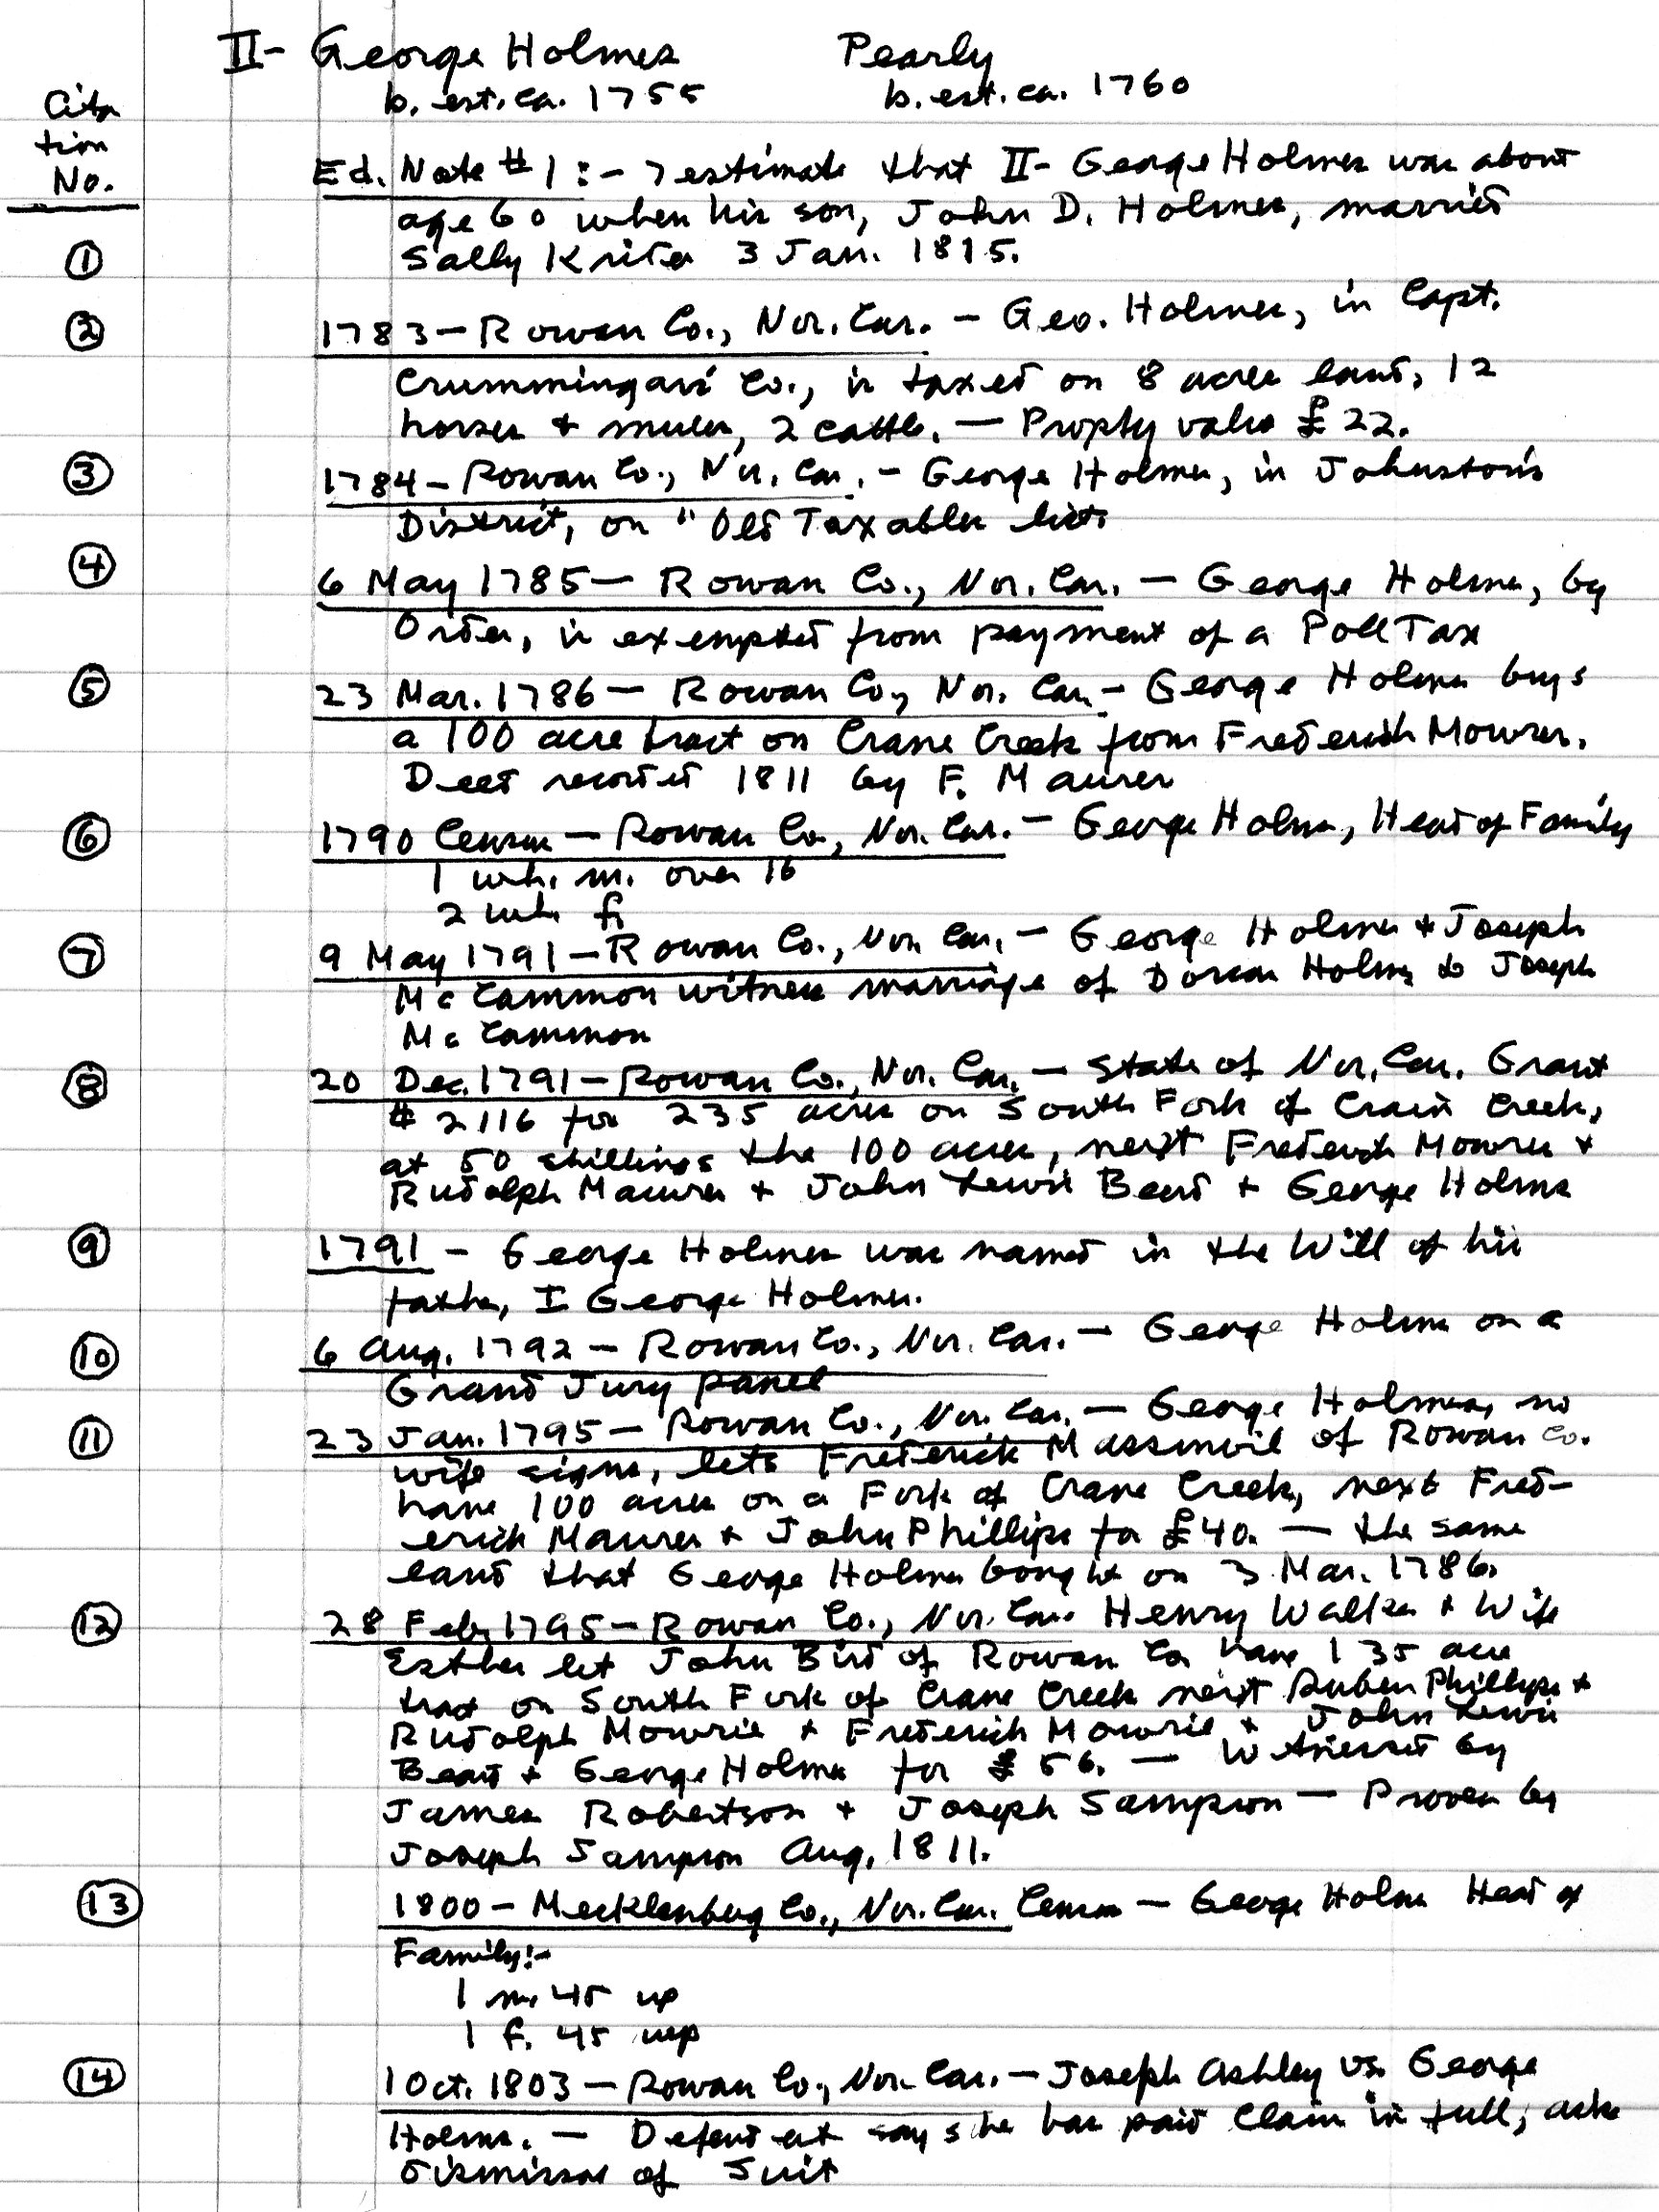 II- George Holmes Pearly
b. est. ca. 1755 b. est. ca. 1760
Cita
tion
No.
Ed. Note #1:- I estimate that II- George Holmes was about
age 60 when his son, John D. Holmes, married
① Sally Krider 3 Jan. 1815.
② 1783 - Rowan Co., Nor. Car. - Geo. Holmes, in Capt.
Crummingars' Co., is taxed on 8 acres land, 12
horses & mules, 2 cattle. - Proply value £22.
③ 1784 - Rowan Co., Nor. Car. - George Holmes, in Johnston's
District, on "Old Taxables list
④ 6 May 1785 - Rowan Co., Nor. Car. - George Holmes, by
Order, is exempted from payment of a Poll Tax
⑤ 23 Mar. 1786 - Rowan Co, Nor. Car. - George Holmes buys
a 100 acre tract on Crane Creek from Frederick Mowrer.
Deed recorded 1811 by F. Maurer
⑥ 1790 Census - Rowan Co., Nor. Car. - George Holmes, Head of Family
1 wh. m. over 16
2 wh. f.
⑦ 9 May 1791 - Rowan Co., Nor. Car. - George Holmes & Joseph
McCammon witness marriage of Dorcas Holmes to Joseph
McCammon
⑧ 20 Dec. 1791 - Rowan Co., Nor. Car. - State of Nor. Car. Grant
#2116 for 235 acres on South Fork of Crain Creek,
at 50 shillings the 100 acres, next Frederick Mowrer &
Rudolph Maurer & John Lewis Beard & George Holmes
⑨ 1791 - George Holmes was named in the Will of his
father, I George Holmes.
⑩ 6 Aug. 1792 - Rowan Co., Nor. Car. - George Holmes on a
Grand Jury panel
⑪ 23 Jan. 1795 - Rowan Co., Nor. Car. - George Holmes, no
wife signs, lets Frederick Massinvil of Rowan Co.
have 100 acres on a Fork of Crane Creek, next Fred-
erick Maurer & John Phillips for £40. - the same
land that George Holmes bought on 3 Mar. 1786.
⑫ 28 Feb. 1795 - Rowan Co., Nor. Car. Henry Walker & Wife
Esther let John Bird of Rowan Co. have 135 acre
tract on South Fork of Crane Creek next Ruben Phillips &
Rudolph Mowrie & Frederick Mowrie & John Lewis
Beard & George Holmes for £56. - Witnessed by
James Robertson & Joseph Sampson - Proven by
Joseph Sampson Aug. 1811.
⑬ 1800 - Mecklenburg Co., Nor. Car. Census - George Holmes Head of
Family:-
1 m. 45 up
1 f. 45 up
⑭ 1 Oct. 1803 - Rowan Co., Nor. Car. - Joseph Ashley vs. George
Holmes. - Defendent says he has paid Claim in full, asks
dismissal of Suit